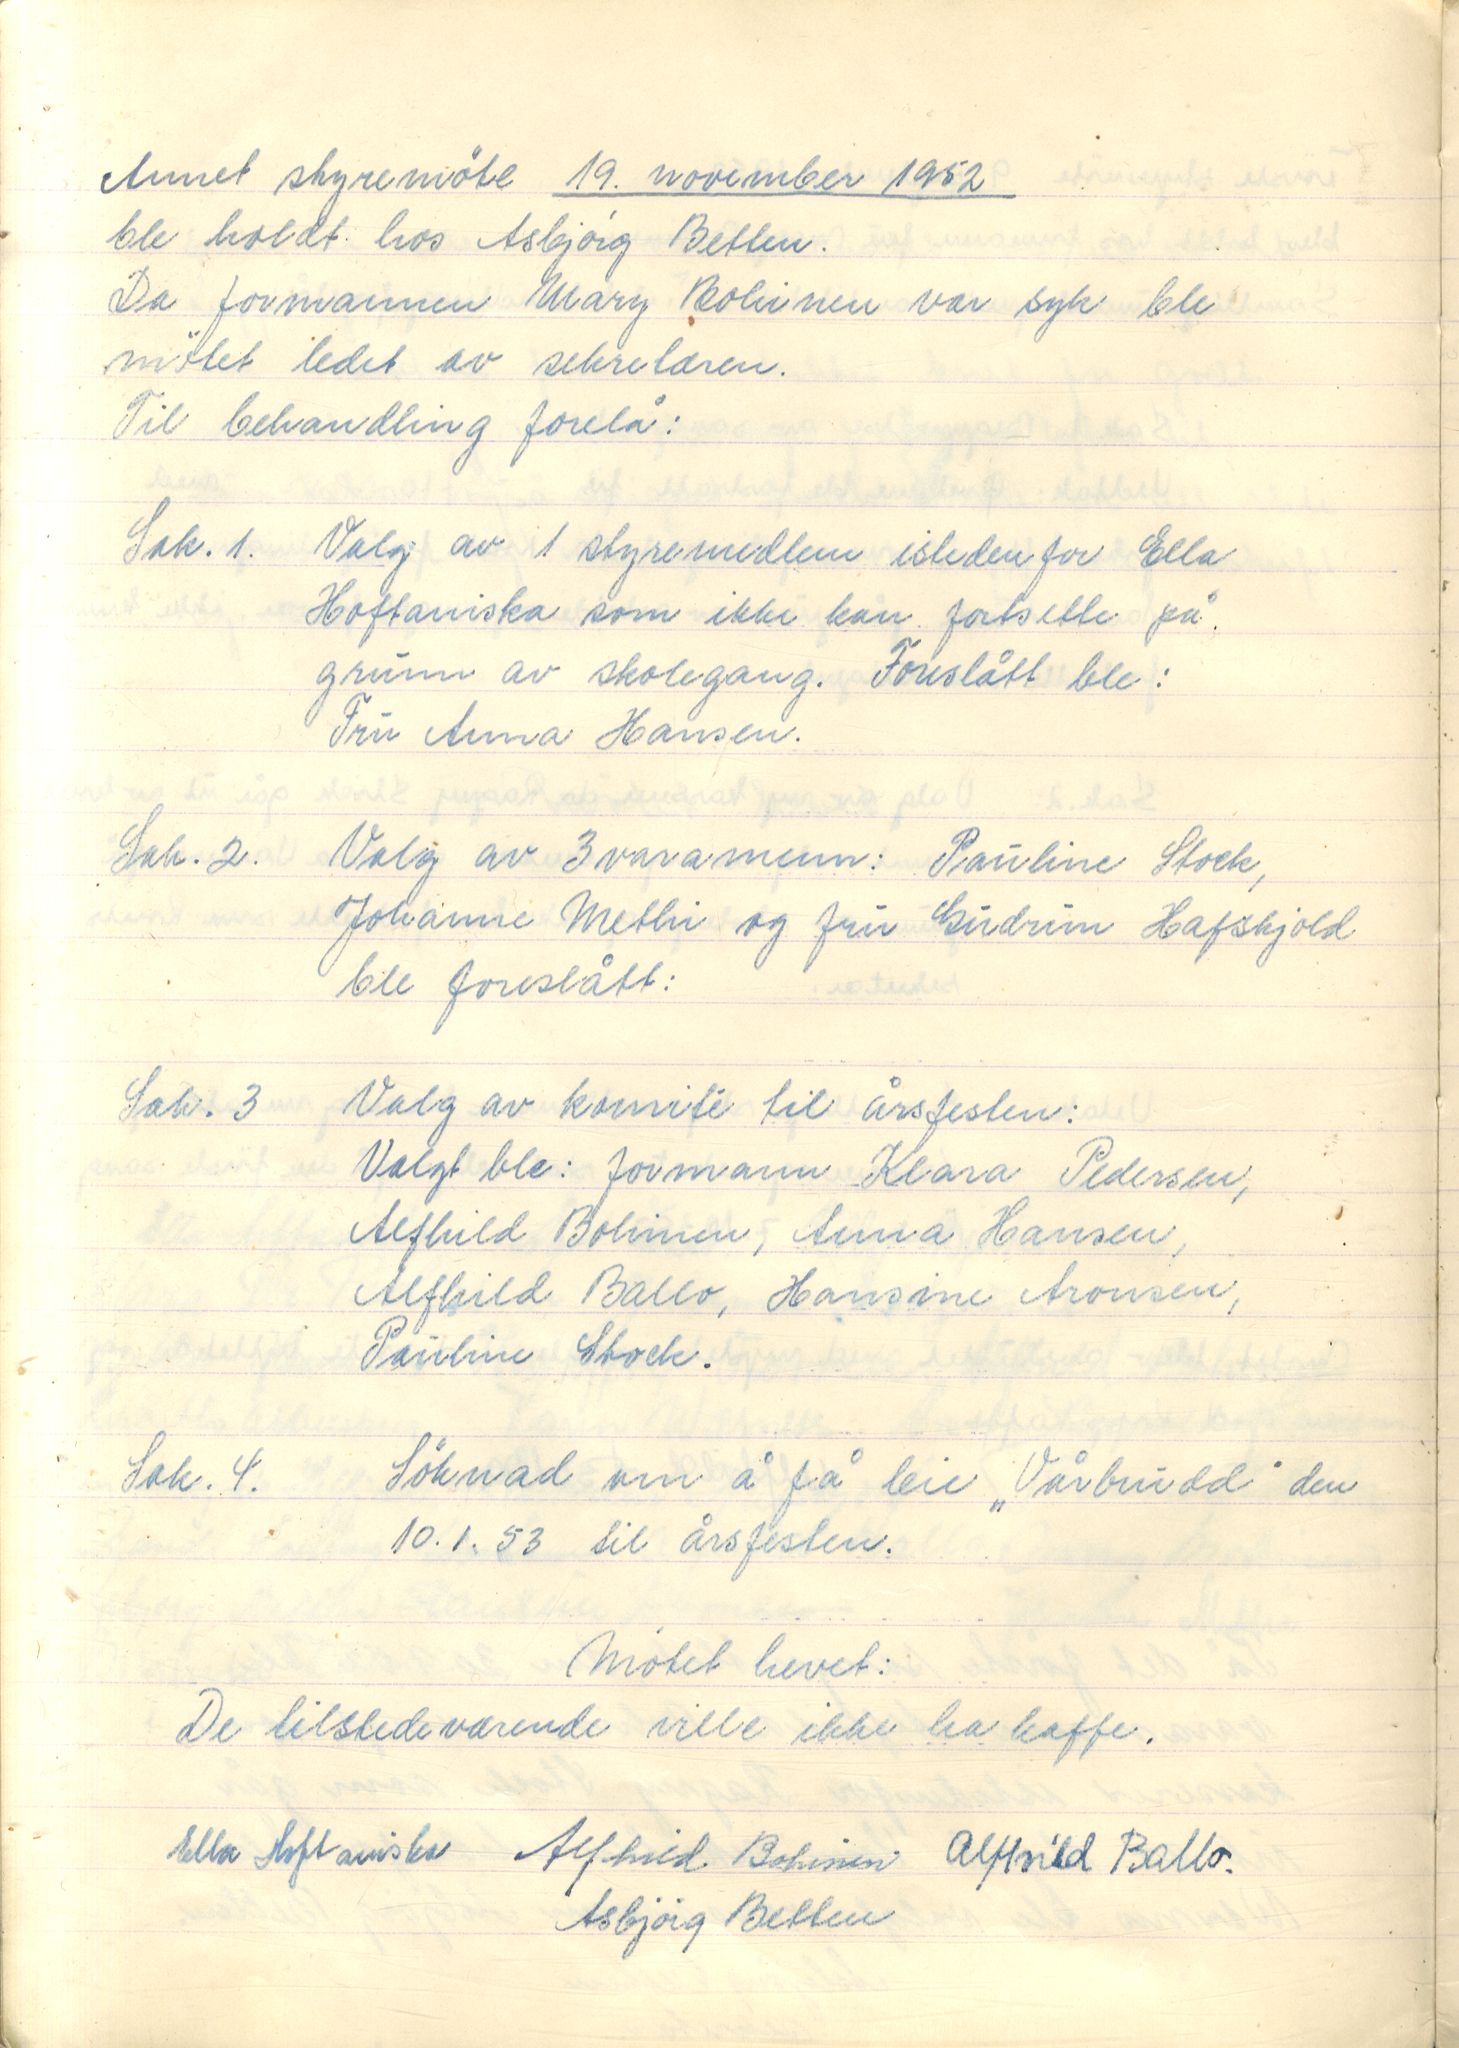 Annet styremöte 19. november 1952
ble holdt hos Asbjörg Betten.
Da formannen Mary Bohinen var syk ble
mötet ledet av sekretæren.
Til behandling forelå:
Sak. 1. Valg av 1 styremedlem istedenfor Ella
Hoftaniska som ikke kan fortsette på
grunn av skolegang. Foreslått ble:
Fru Anna Hansen.
Sak. 2. Valg av 3 varamenn: Pauline Stock,
Johanne Methi og fru Gudrun Hafskjold
ble foreslått:
Sak. 3 Valg av komité til årsfesten:
Valgt ble: formann Klara Pedersen,
Alfhild Bohinen, Anna Hansen,
Alfhild Ballo, Hansine Aronsen,
Pauline Stock.
Sak. 4. Söknad om å få leie „Vårbudd" den
10.1.53 til årsfesten.
Mötet hevet:
De tilstedeværende ville ikke ha kaffe.
Ella Hoftaniska Alfhild Bohinen Alfhild Ballo.
Asbjörg Betten